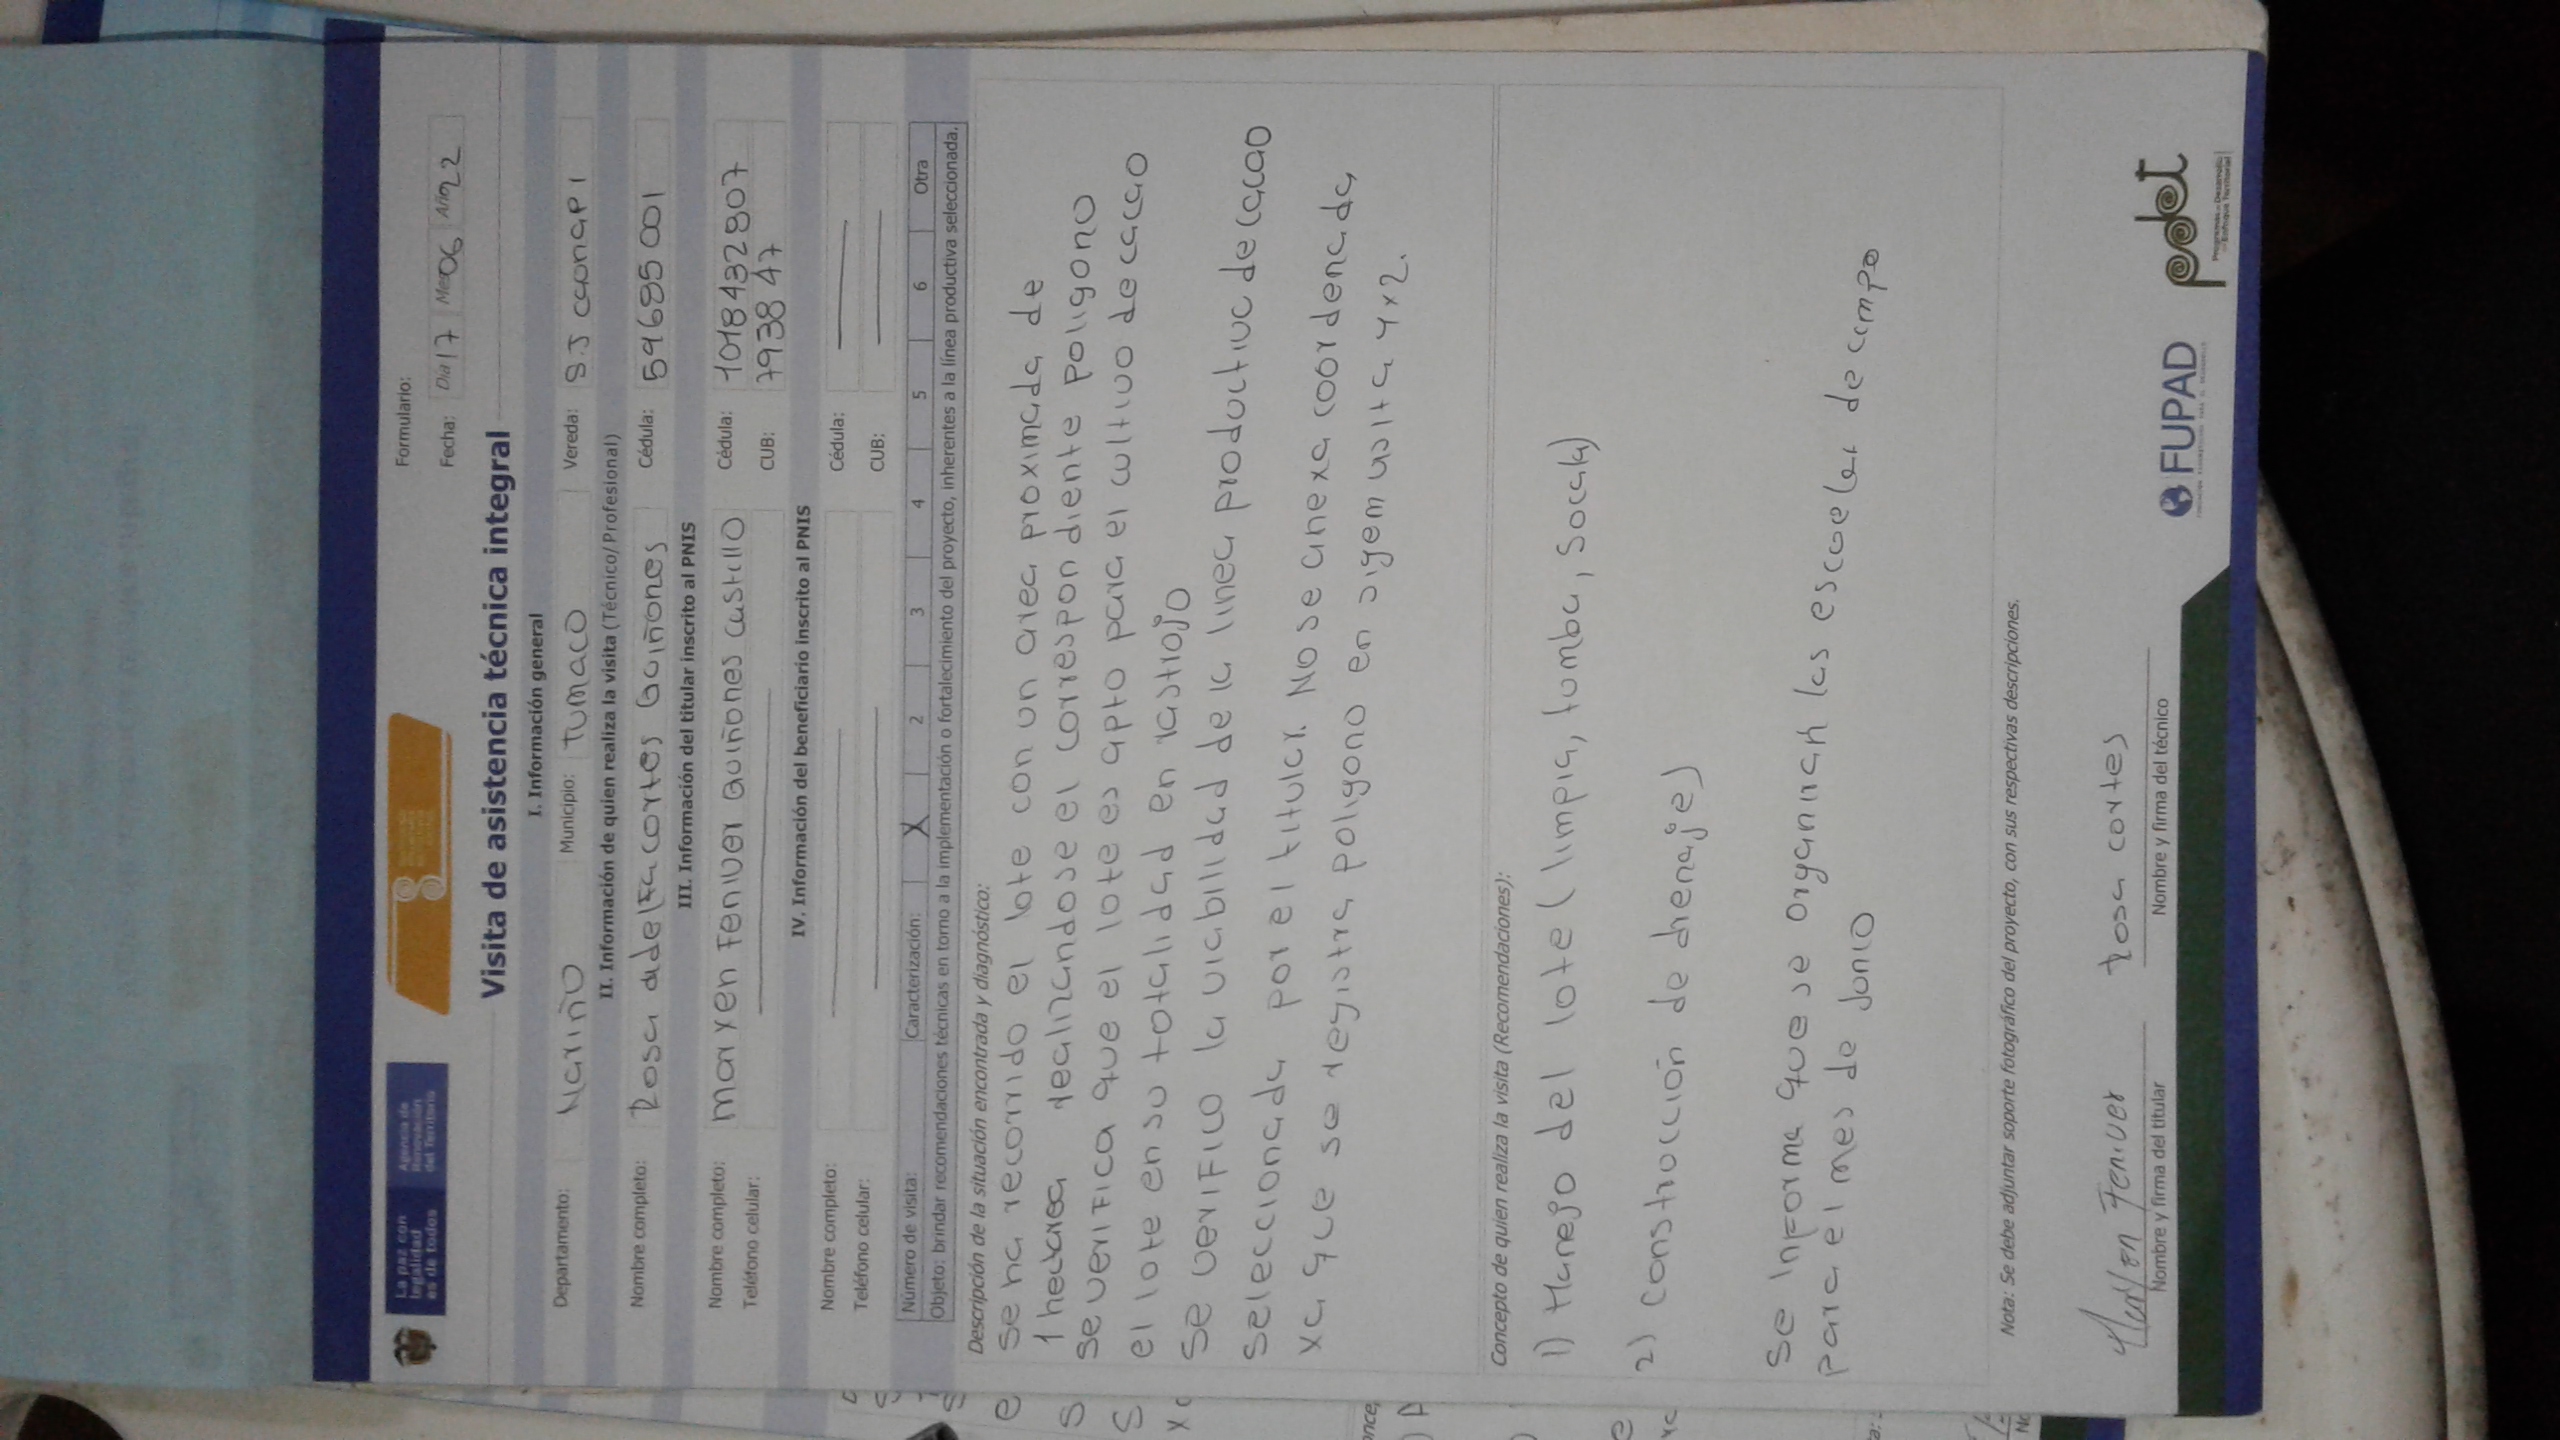 La paz con
legalidad
es de todos
Agencia de
Renovación
del Territorio
Formulario:
Fecha: Día 17 Mes 06 Año 22
Visita de asistencia técnica integral
I. Información general
Departamento: Nariño Municipio: Tumaco Vereda: S.J caonapi
II. Información de quien realiza la visita (Técnico/Profesional)
Nombre completo: Rosa adelfa cortes Quiñones Cédula: 59685001
III. Información del titular inscrito al PNIS
Nombre completo: marxen Feniver Quiñones castillo Cédula: 1018432807
Teléfono celular: CUB: 793847
IV. Información del beneficiario inscrito al PNIS
Nombre completo: Cédula:
Teléfono celular: CUB:
Número de visita: Caracterización: X 2 3 4 5 6 Otra
Objeto: brindar recomendaciones técnicas en torno a la implementación o fortalecimiento del proyecto, inherentes a la línea productiva seleccionada.
Descripción de la situación encontrada y diagnóstico:
se ha recorrido el lote con un area proximada de
1 hectarea realizandose el correspondiente poligono
se verifica que el lote es apto para el cultivo de cacao
el lote en su totalidad en rastrojo
Se verifico la viabilidad de la linea productiva de cacao
seleccionada por el titular. No se anexa coordenada
xa que se registra poligono en sigem usita 4x2.
Concepto de quien realiza la visita (Recomendaciones):
1) Manejo del lote (limpia, tumba, socala)
2) construcción de drenajes)
Se informa que se organizan las escoelas de campo
para el mes de Junio
Nota: Se debe adjuntar soporte fotográfico del proyecto, con sus respectivas descripciones.
Marxen Feniver rosa cortes
Nombre y firma del titular Nombre y firma del técnico
FUPAD
pdet